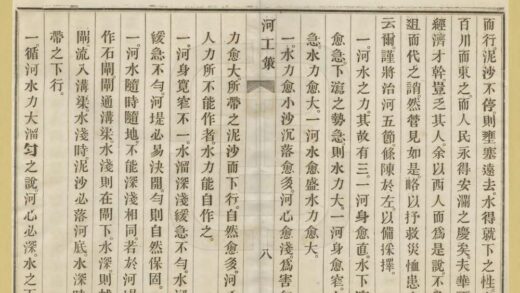 而行泥沙不停則壅塞遠去。水得就下之性
百川而東之而人民永得安瀾之慶矣夫華
經濟才幹豈乏其人余以西人而爲是說不
俎而代之誚然管見如是略以抒救災恤患
云爾謹將治河五節條陳於左以備採擇。
一河水之力其故有三一河身愈直。水下
愈急。下瀉之勢急。則水力大。一河身愈窄
急水力愈大。一河水愈盛水力愈大。
一水力愈小沙沉落愈多河心愈淺爲害
河工策
八
力愈大。所帶之泥沙而下行。自然愈多。河
人力所不能作者。水力能自作之。
一河身寬窄不一。水溜深淺緩急不勻。水
緩急不勻河堤必易決開。勻則自然保固。
一河水隨時隨地不能深淺相同若於河
作石閘閘通溝渠水淺則在閘下水深則
閘流入溝渠。水淺時泥沙必落河底。水深時
帶之下行。
一循河水力大溜勻之說。河心必深。水之下